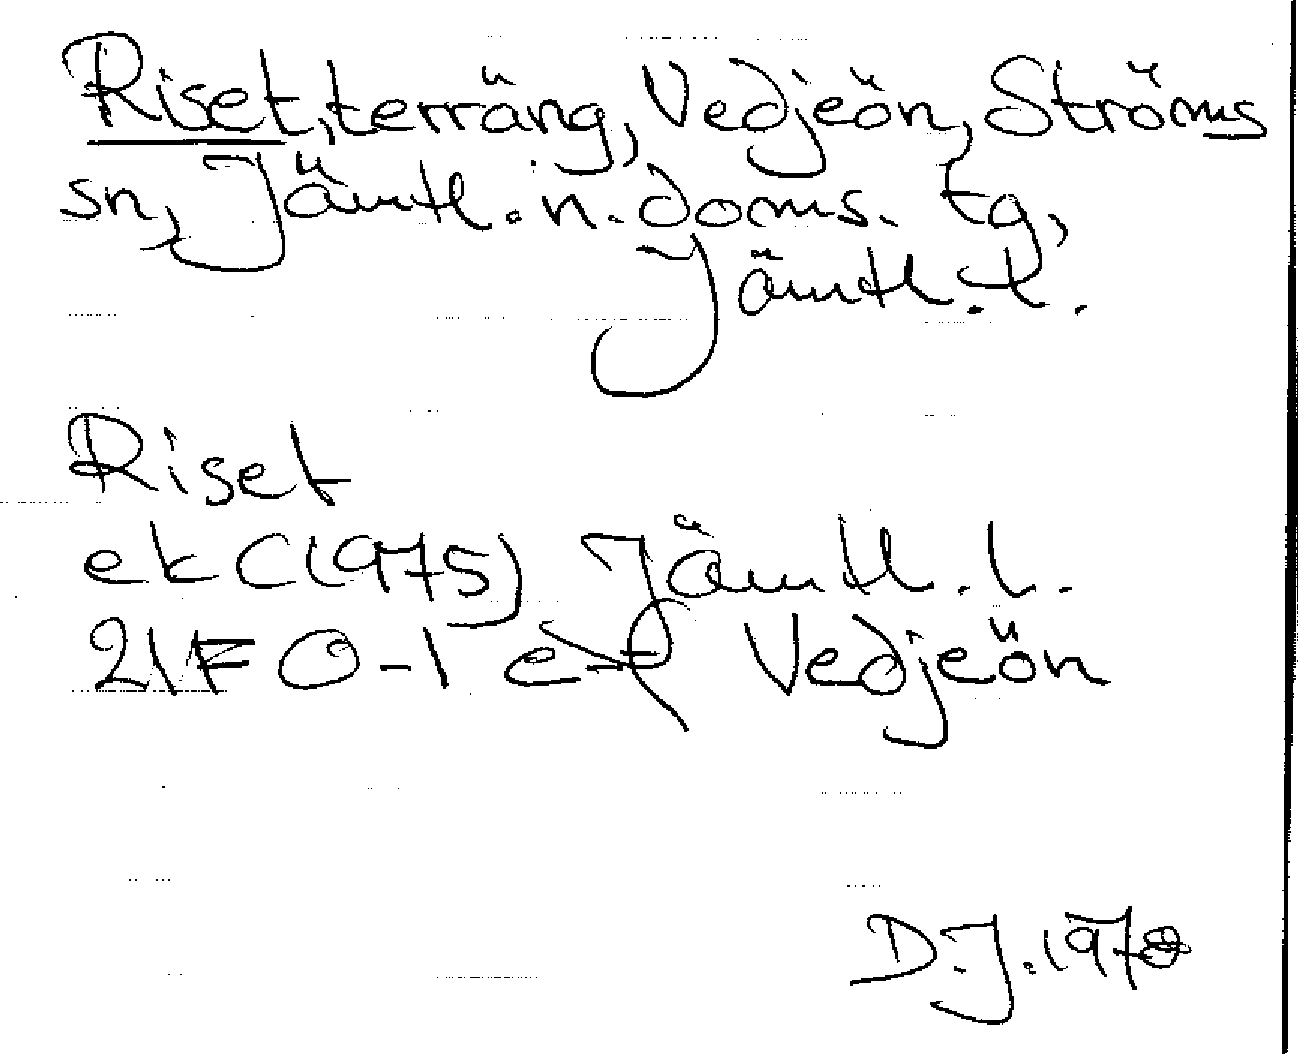 Riset, terräng, Vedjeön, Ströms
sn, Jämtl. n. doms. tg,
Jämtl. l.
Riset
ek C (1975) Jämtl. l.
21F 0-1 e-f Vedjeön
D.J. 1978